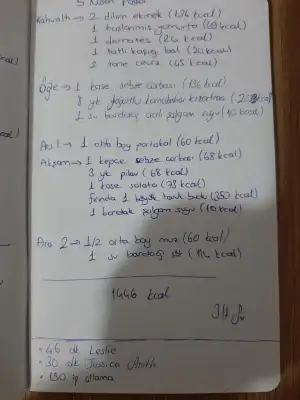 5 Nisan Pazar
Kahvaltı → 2 dilim ekmek (136 kcal)
1 haşlanmış yumurta (69 kcal)
1 domates (26 kcal)
1 tatlı kaşığı bal (20 kcal)
1 tane ceviz (45 kcal)
Öğle → 1 kase sebze çorbası (136 kcal)
8 yk yoğurtlu kızartma
1 su bardağı acılı şalgam suyu (10 kcal)
Ara 1 → 1 orta boy portakal (60 kcal)
Akşam → 1 kepçe sebze çorbası (68 kcal)
3 yk pilav (68 kcal)
1 kase salata (73 kcal)
fırında 1 tavuk budu (350 kcal)
1 bardak şalgam suyu (10 kcal)
Ara 2 → 1/2 orta boy muz (60 kcal)
1 su bardağı süt (114 kcal)
1446 kcal
3lt su
• 46 dk Leslie
• 30 dk Jessica Smith
• 130 ip atlama